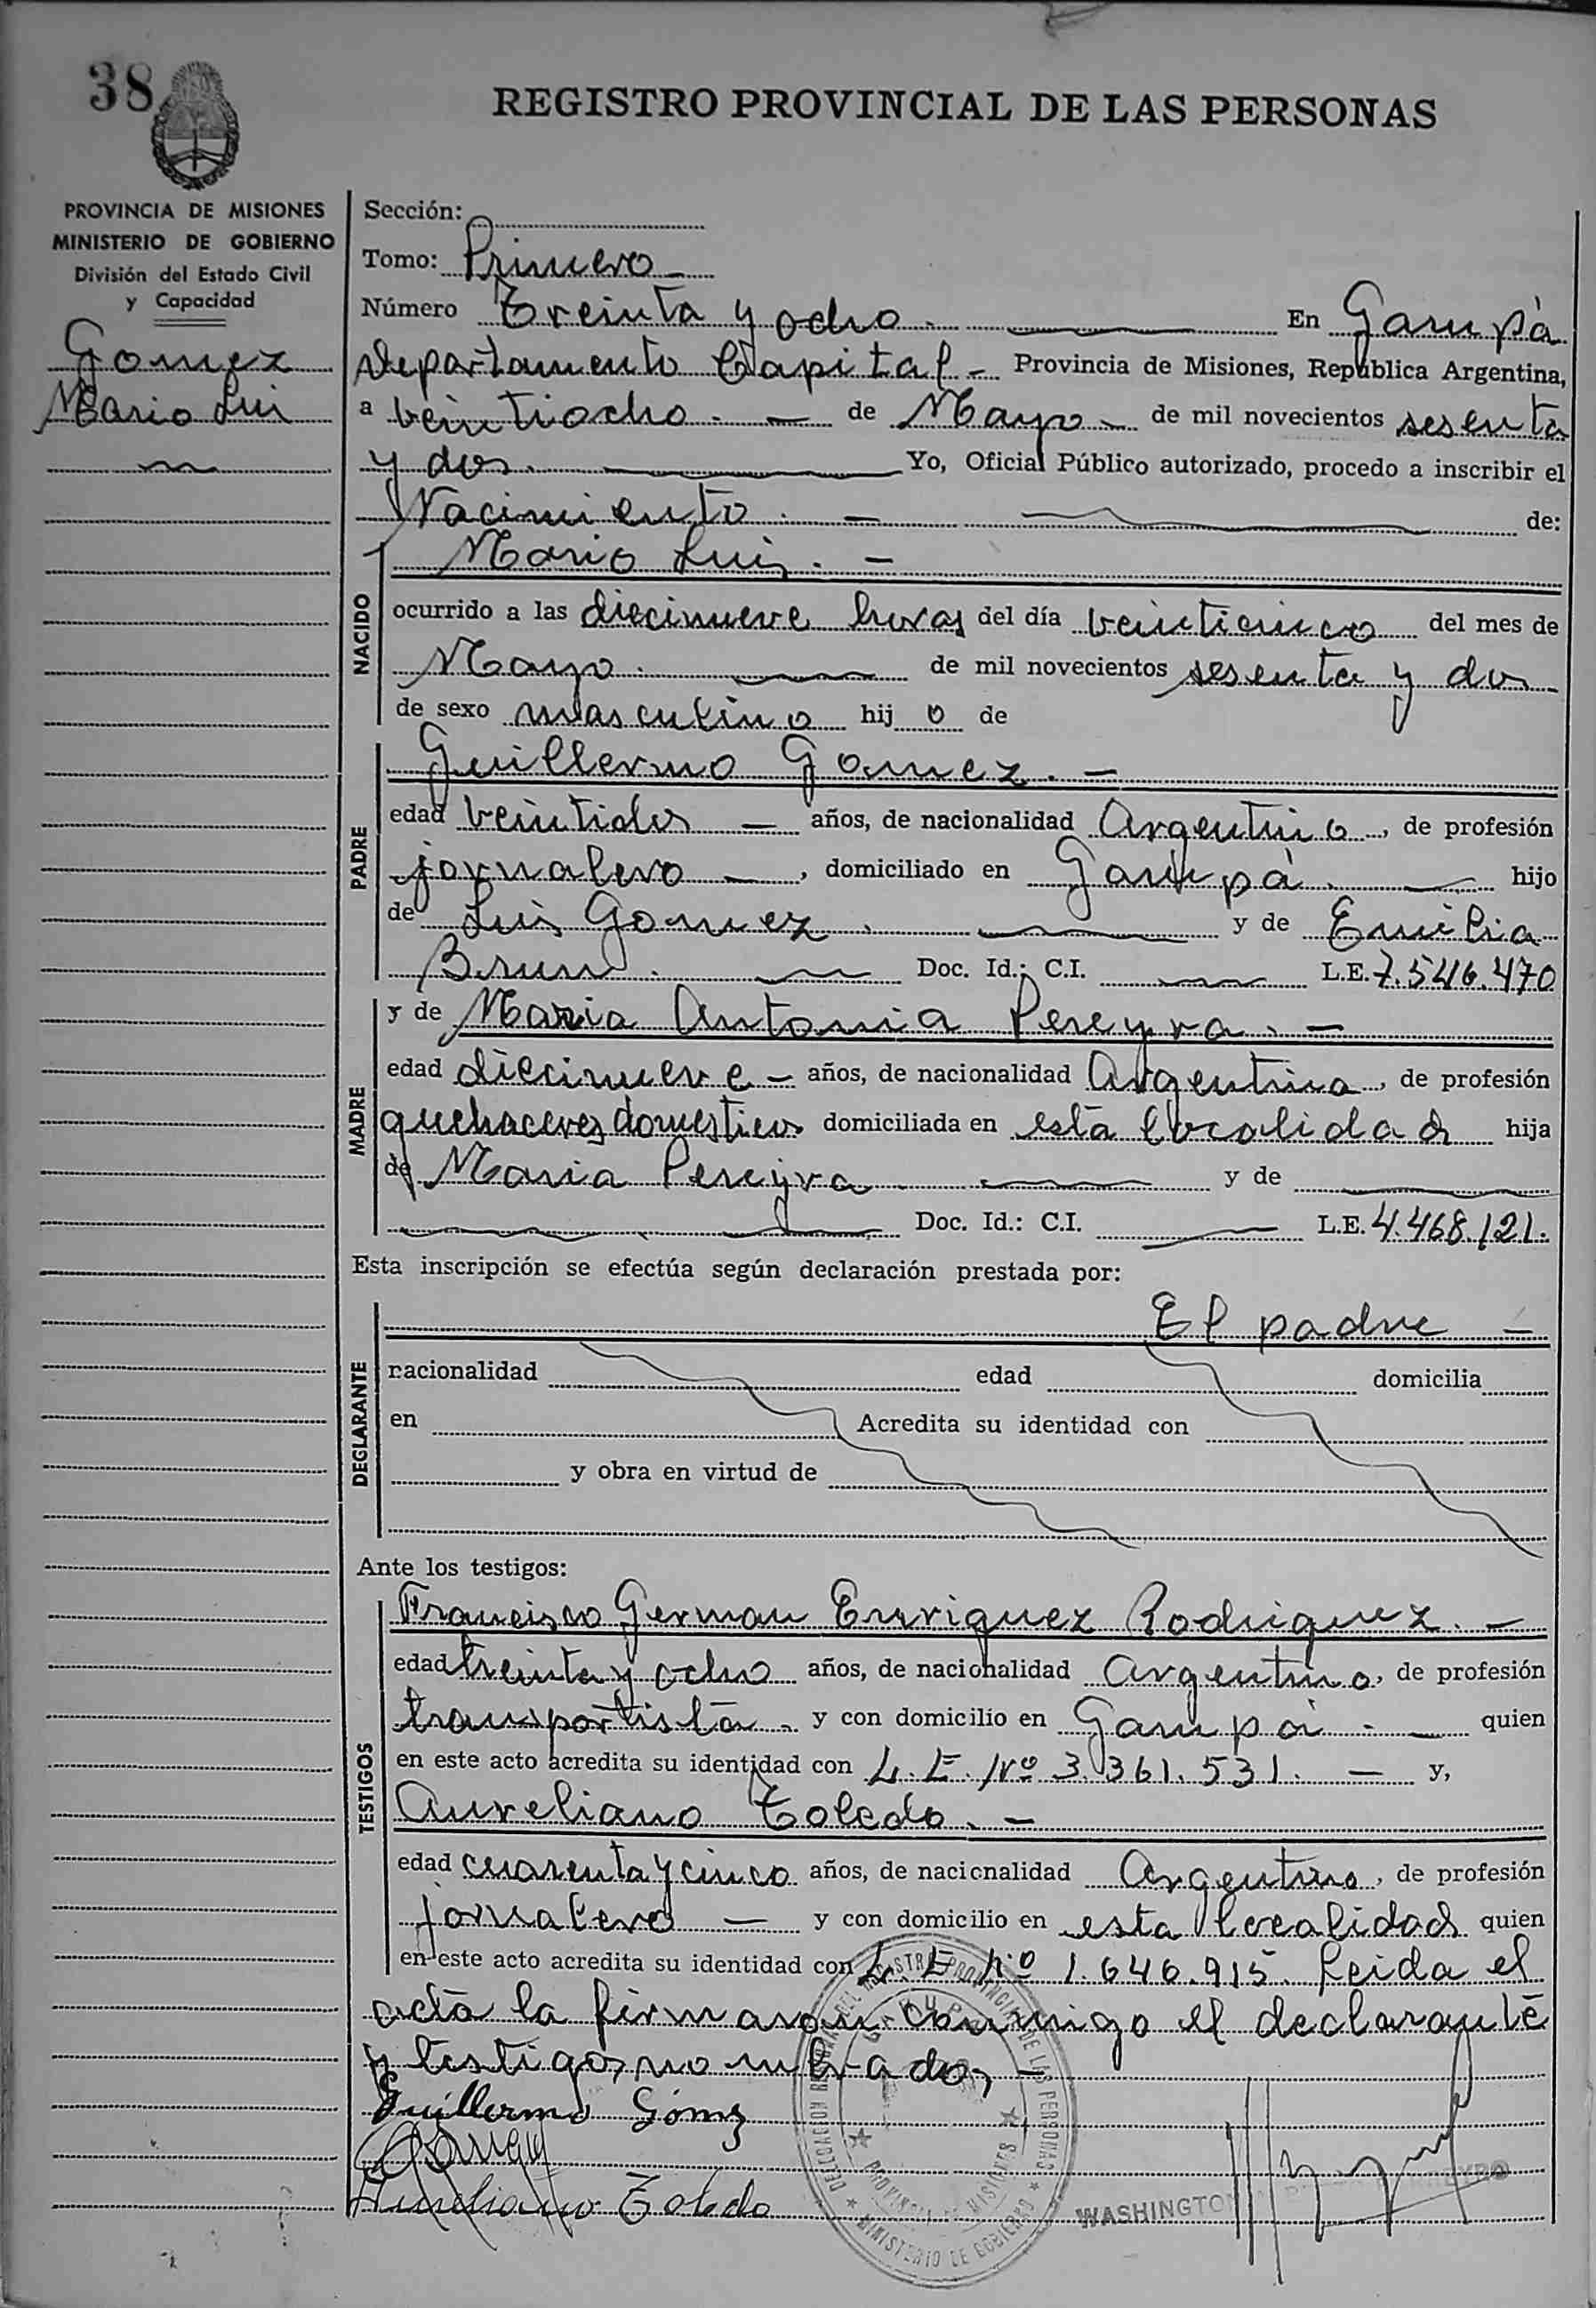 38
REGISTRO PROVINCIAL DE LAS PERSONAS
PROVINCIA DE MISIONES
MINISTERIO DE GOBIERNO
División del Estado Civil
y Capacidad
Gomez
Mario Luis
Sección:
Tomo: Primero
Número Treinta y ocho. En Garupá
Departamento Capital - Provincia de Misiones, República Argentina,
a veintiocho. - de Mayo - de mil novecientos sesenta
y dos. Yo, Oficial Público autorizado, procedo a inscribir el
Nacimiento. - de:
NACIDO
Mario Luis. -
ocurrido a las diecinueve horas del día veinticinco del mes de
Mayo. de mil novecientos sesenta y dos
de sexo masculino hijo de
PADRE
Guillermo Gomez. -
edad veintidos - años, de nacionalidad Argentino, de profesión
jornalero -, domiciliado en Garupá. hijo
de Luis Gomez. y de Emilia
Brun. Doc. Id.: C.I. L.E. 7.546.470
MADRE
y de Maria Antonia Pereyra. -
edad diecinueve - años, de nacionalidad Argentina, de profesión
quehaceres domesticos domiciliada en esta localidad hija
de Maria Pereyra y de
Doc. Id.: C.I. L.E. 4.468.121.
Esta inscripción se efectúa según declaración prestada por:
DECLARANTE
El padre -
nacionalidad edad domicilia
en Acredita su identidad con
y obra en virtud de
Ante los testigos:
TESTIGOS
Francisco German Enriquez Rodriguez. -
edad treinta y ocho años, de nacionalidad argentino, de profesión
transportista - y con domicilio en Garupá. - quien
en este acto acredita su identidad con L.E. Nº 3.361.531. - y,
Aureliano Toledo. -
edad cuarenta y cinco años, de nacionalidad Argentino, de profesión
jornalero - y con domicilio en esta localidad quien
en este acto acredita su identidad con L.E Nº 1.646.915. Leida el
acta la firmaron conmigo el declarante
y testigos nombrados -
Guillermo Gómez
Aureliano Toledo
WASHINGTON
DELEGACION DEL REGISTRO PROVINCIAL DE LAS PERSONAS
GARUPA
PROVINCIA DE MISIONES
MINISTERIO DE GOBIERNO